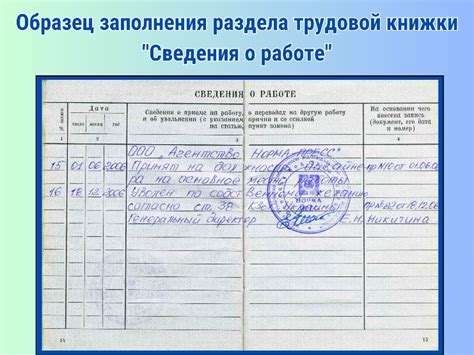 Образец заполнения раздела трудовой книжки
"Сведения о работе"
СВЕДЕНИЯ О РАБОТЕ
№ записи
Дата
число
месяц
год
Сведения о приеме на работу, о переводах на другую работу
и об увольнении (с указанием причин и со ссылкой
на статью, пункт закона)
На основании чего
внесена запись
(документ, его дата
и номер)
1
2
3
4
ООО "Агентство НОРМА-ПРЕСС"
15 01 06 2006 Принят на долж дизайне пр №10 от 01.06.06
ра на основное место работы
16 18 12 2006 Уволен по соб желанию пр №22 от 18.12.06
согласно ст. 38 КЗоТ Украины
Генеральный директор Е.Н. Никитина
НОРМА
14
15